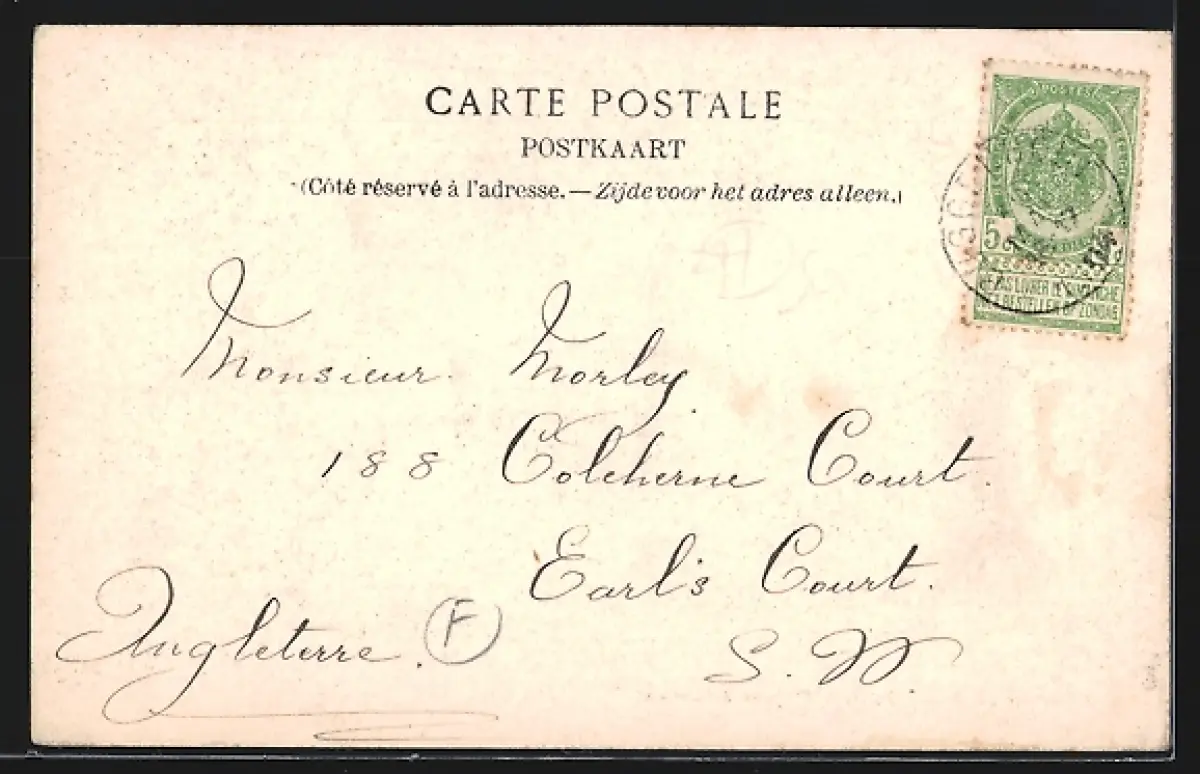 CARTE POSTALE
POSTKAART
(Côté réservé à l'adresse. — Zijde voor het adres alleen.)
POSTES
5
NE PAS LIVRER LE DIMANCHE
NIET BESTELLEN OP ZONDAG
Monsieur Morley
188 Colcherne Court.
Earl's Court.
S. W.
Angleterre. F